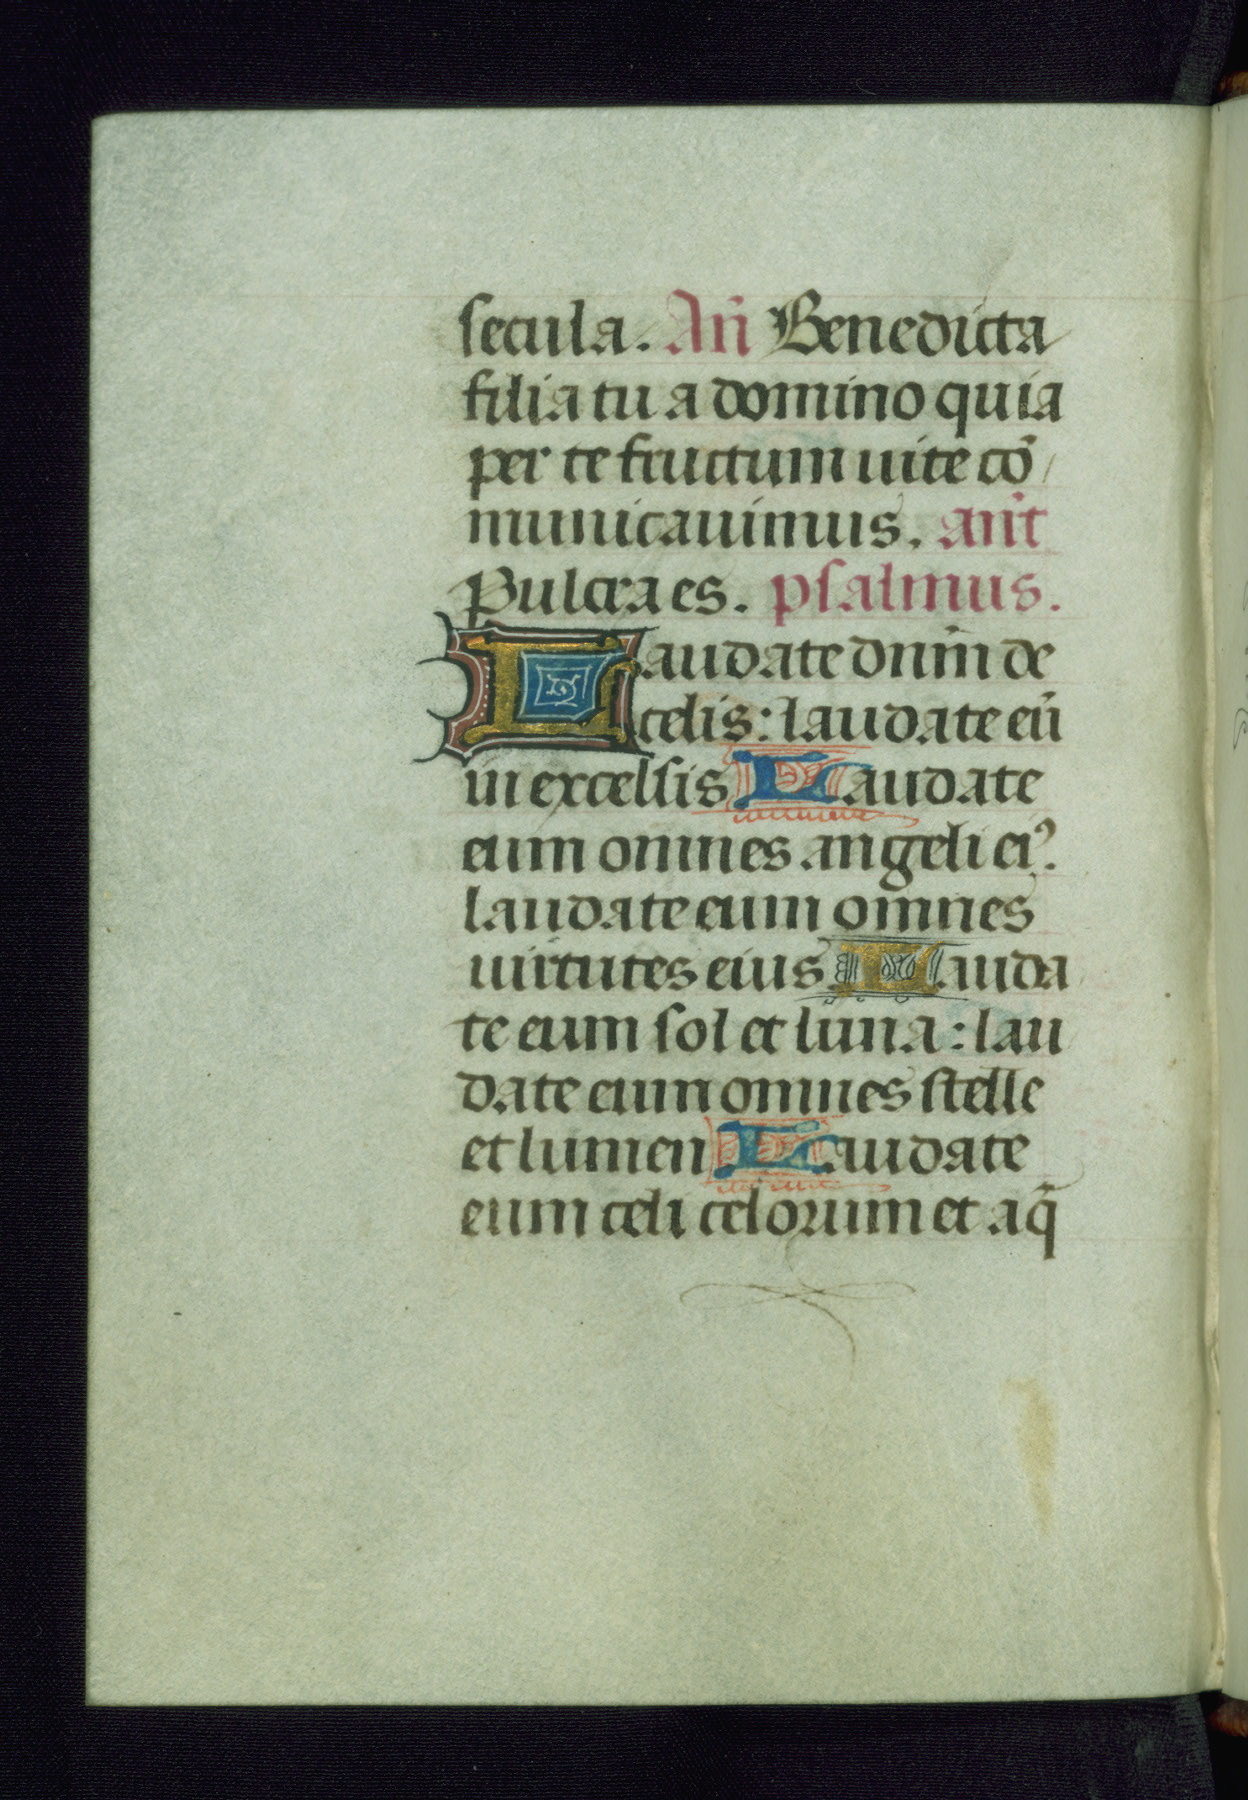 secula. An̄ Benedicta
filia tu a domino quia
per te fructum uite cō
municauimus. an̄t
Pulcra es. psalmus.
Laudate dn̄m de
celis: laudate eū
in excelsis Laudate
eum omnes angeli ei⁹.
laudate eum omnes
uirtutes eius Lauda
te eum sol et luna: lau
date eum omnes stelle
et lumen Laudate
eum celi celorum et aq̄